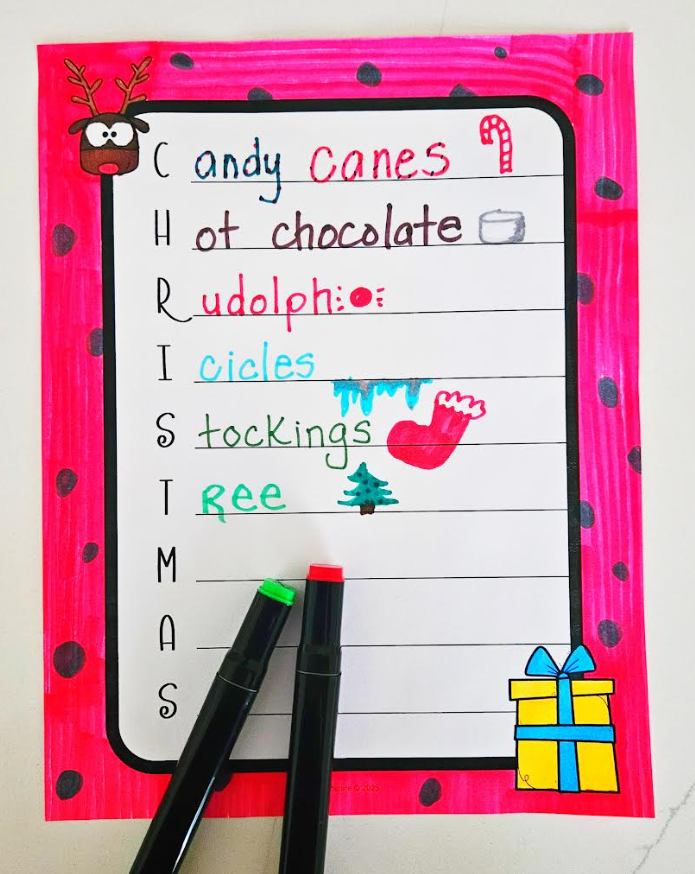 Candy canes
Hot chocolate
Rudolph
Icicles
Stockings
TRee
M
A
S
© 2025